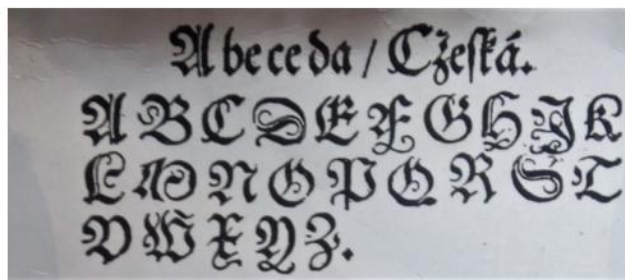 Abeceda / Cžeſká.
A B C D E F G H J K
L M N O P Q R S T
V W X Y Z.